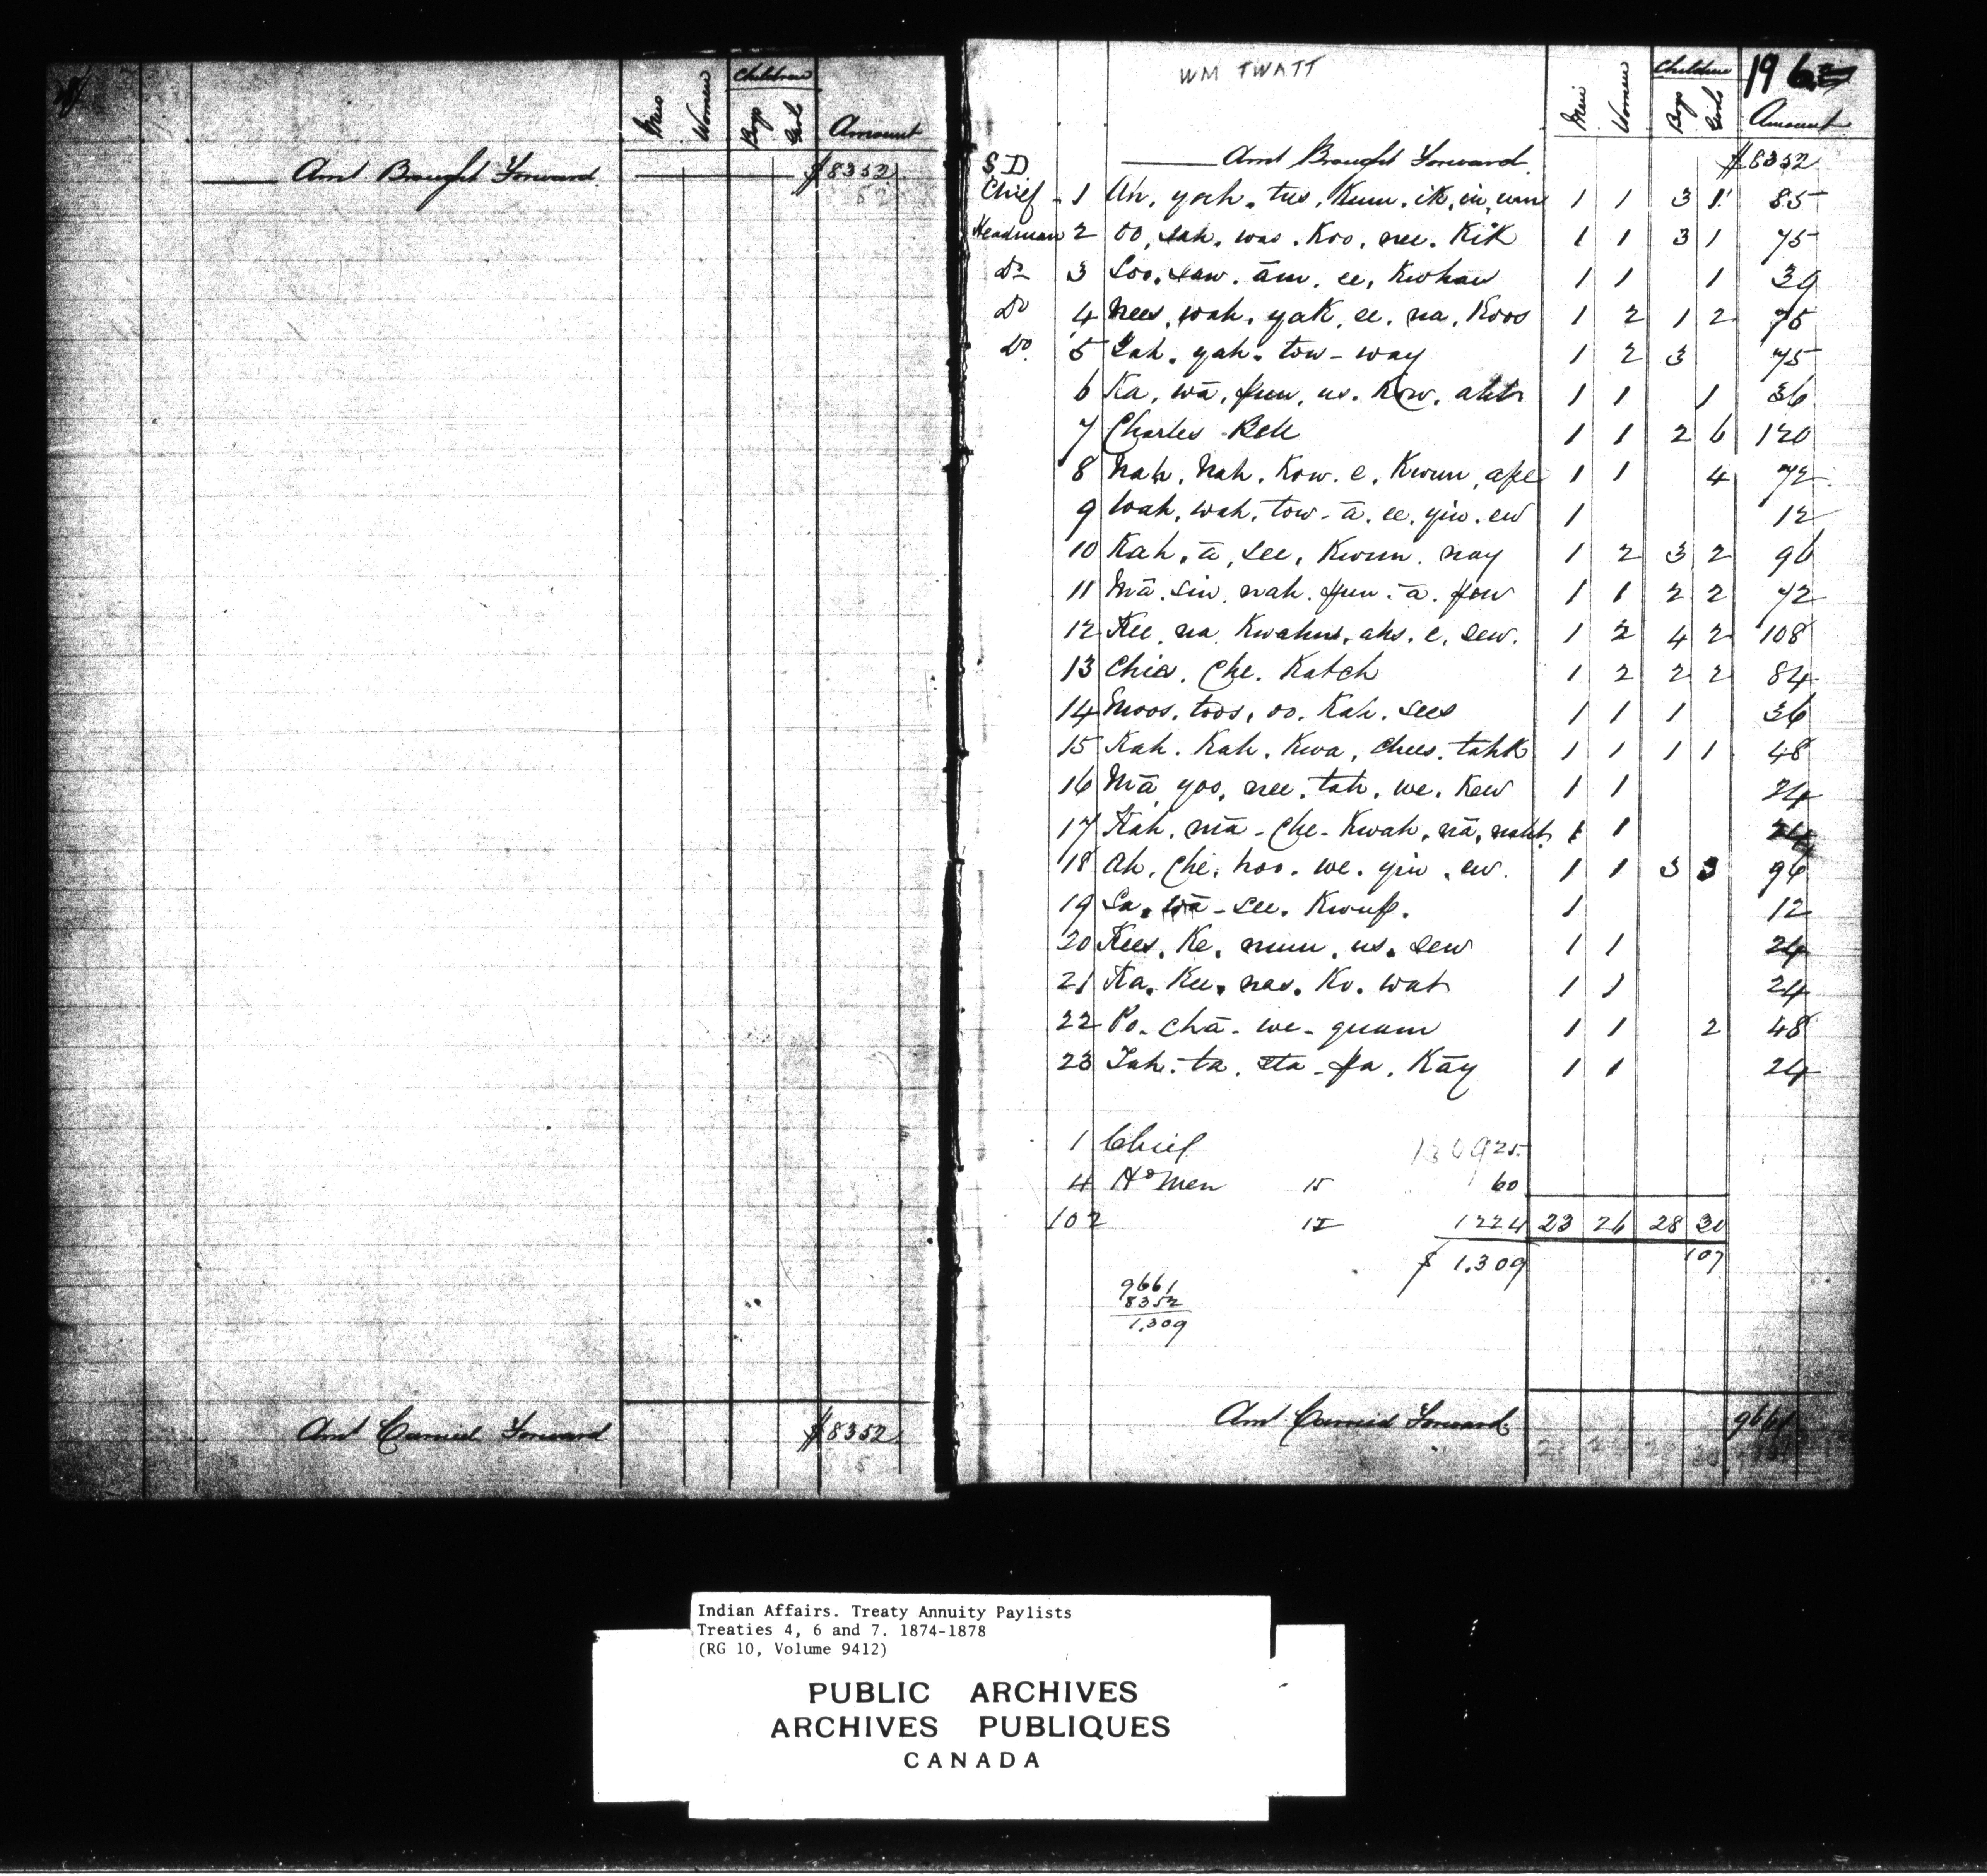 Children
Men Women Boys Girls Amount
Amt. Brought Forward. $8352
Amt Carried Forward $8352
WM TWATT
196
Children
Men Women Boys Girls Amount
S D Amt Brought Forward $8352
Chief - 1 Ah. yah. tus. Kum. ik. in. um 1 1 3 1 85
Headman 2 oo. sah. was. Koo. nee. Kik 1 1 3 1 75
Do 3 Soo. saw. ām. ee. Kwhaw 1 1 1 39
Do 4 Nees. wah. yak. ee. na. Koos 1 2 1 2 75
Do. 5 Yah. yah. tow - way 1 2 3 75
6 Ka. wā. pun. us. Kow. ahtr 1 1 1 36
7 Charles Bell 1 1 2 6 120
8 Nah. Nah. Kow. e. Kwun. ape 1 1 4 72
9 Wah. wah. tow - ā. ee. yiw. ew 1 12
10 Kah. ā. see. Kwun. nay 1 2 3 2 96
11 Mā. sin. nah. pun. ā. pow 1 1 2 2 72
12 Kee. na. Kwahus. ahs. e. sew. 1 2 4 2 108
13 Chia. Che. Katch 1 2 2 2 84
14 Moos. toos. oo. Kah. sees 1 1 1 36
15 Kah. Kah. Kwa. Chees. tahk 1 1 1 1 48
16 Mā yos. nee. tah. we. Kew 1 1 24
17 Kah. mā - Che - Kwah. nā. naht. 1 1 24
18 Ah. Che. hoo. we. yiw. ew. 1 1 3 3 96
19 Sa. wā - see. Kwup. 1 12
20 Kees. Ke. mun. us. sew 1 1 24
21 Ka. Kee. nas. Ko. wat 1 1 24
22 Po. chā - we - quam 1 1 2 48
23 Tah. ta. sta - pa. Kāy 1 1 24
1 Chief 25
4 Hd Men 15 60
102 12 1224 23 26 28 30
$ 1.309 107
9661
8352
1,309
Amt Carried Forward 9661
Indian Affairs. Treaty Annuity Paylists
Treaties 4, 6 and 7. 1874-1878
(RG 10, Volume 9412)
PUBLIC ARCHIVES
ARCHIVES PUBLIQUES
CANADA